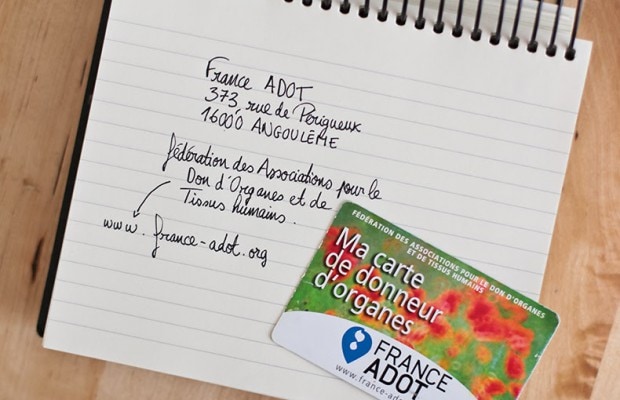 France ADOT
373, rue de Périgueux
16000 ANGOULÊME
Fédération des Associations pour le
Don d'Organes et de
Tissus humains.
www.france-adot.org
FÉDÉRATION DES ASSOCIATIONS POUR LE DON D'ORGANES
ET DE TISSUS HUMAINS
Ma carte
de donneur
d'organes
FRANCE
ADOT
www.france-ado